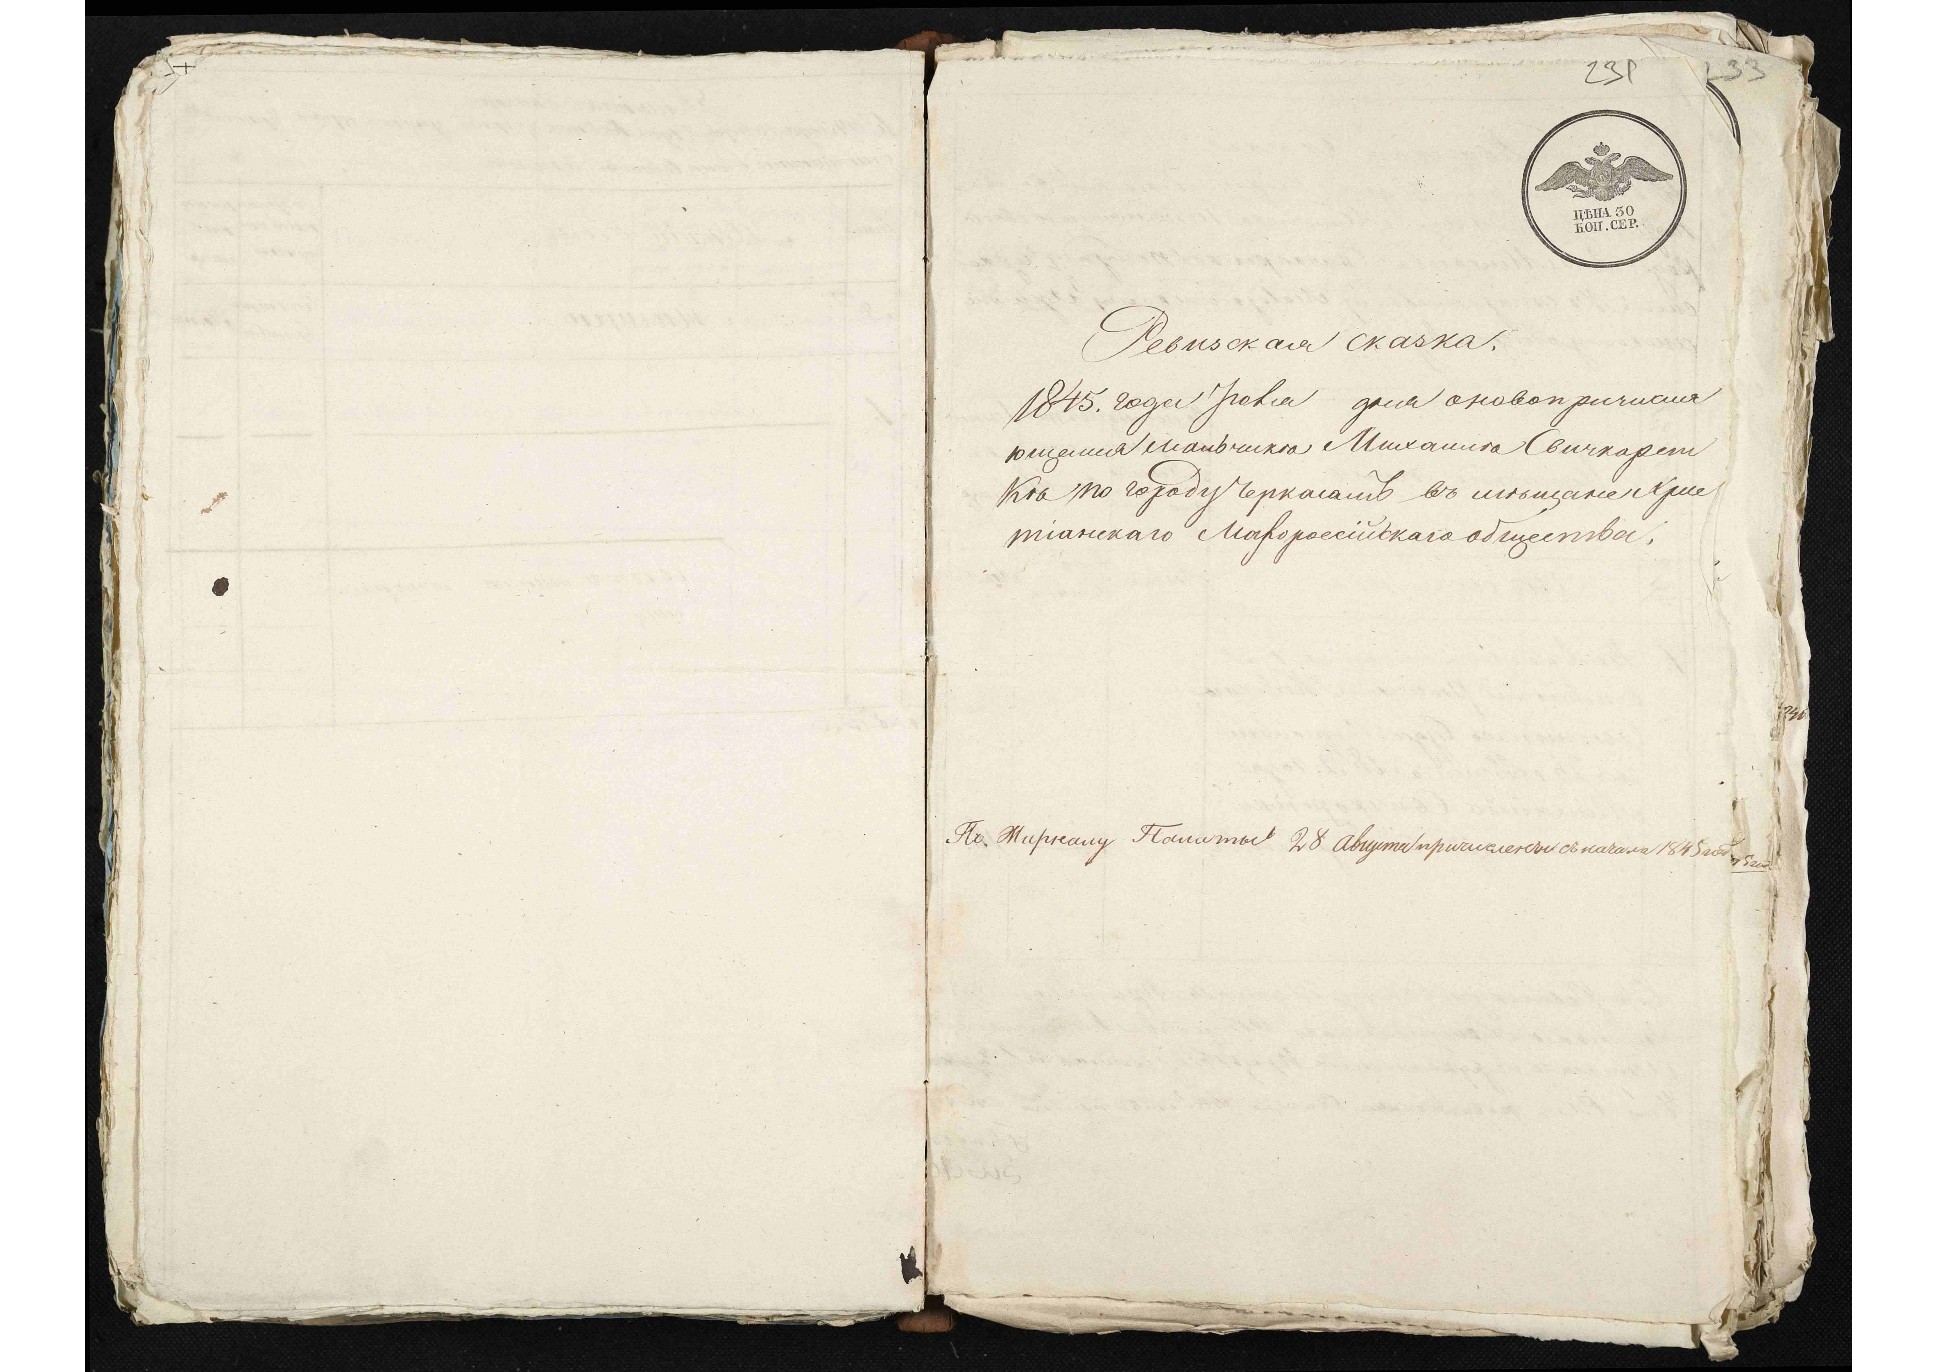 231
233
ЦѢНА 30
КОП. СЕР.
Ревизская сказка.
1845. года Іюля дня о новопричисля
ющемся мальчика Михаила Свичкарен
ка по городу Черкасамъ въ мѣщане Хрис
тіанскаго Малороссійскаго общества.
По Журналу Палаты 28 Августа причисленъ съ начала 1845 год